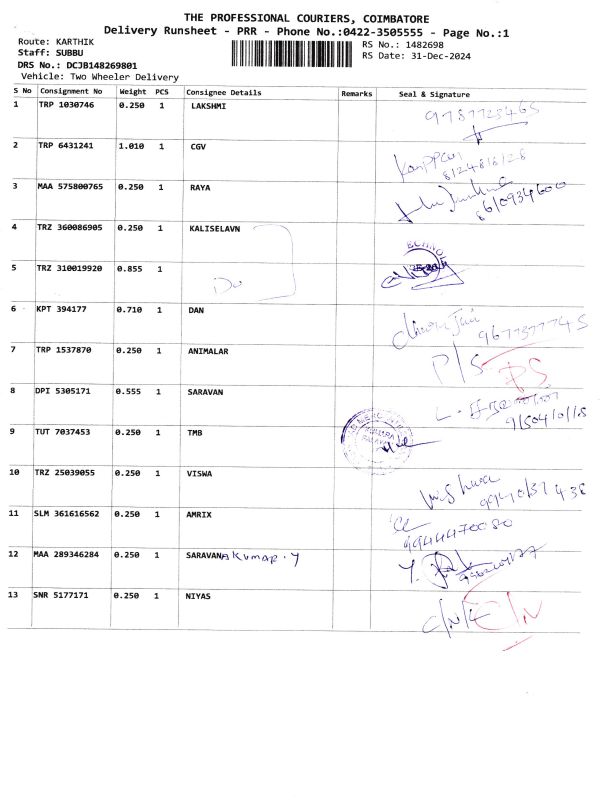 THE PROFESSIONAL COURIERS, COIMBATORE
Delivery Runsheet - PRR - Phone No.:0422-3505555 - Page No.:1
Route: KARTHIK RS No.: 1482698
Staff: SUBBU RS Date: 31-Dec-2024
DRS No.: DCJB148269801
Vehicle: Two Wheeler Delivery
S No Consignment No Weight PCS Consignee Details Remarks Seal & Signature
1 TRP 1030746 0.250 1 LAKSHMI 9787723465
2 TRP 6431241 1.010 1 CGV 8124816128
3 MAA 575800765 0.250 1 RAYA 8610934600
4 TRZ 360086905 0.250 1 KALISELAVN
5 TRZ 310019920 0.855 1 Do
6 KPT 394177 0.710 1 DAN
7 TRP 1537870 0.250 1 ANIMALAR P/S PS
8 DPI 5305171 0.555 1 SARAVAN
9 TUT 7037453 0.250 1 TMB
10 TRZ 25039055 0.250 1 VISWA
11 SLM 361616562 0.250 1 AMRIX 9944470080
12 MAA 289346284 0.250 1 SARAVANAKUMAR.Y
13 SNR 5177171 0.250 1 NIYAS